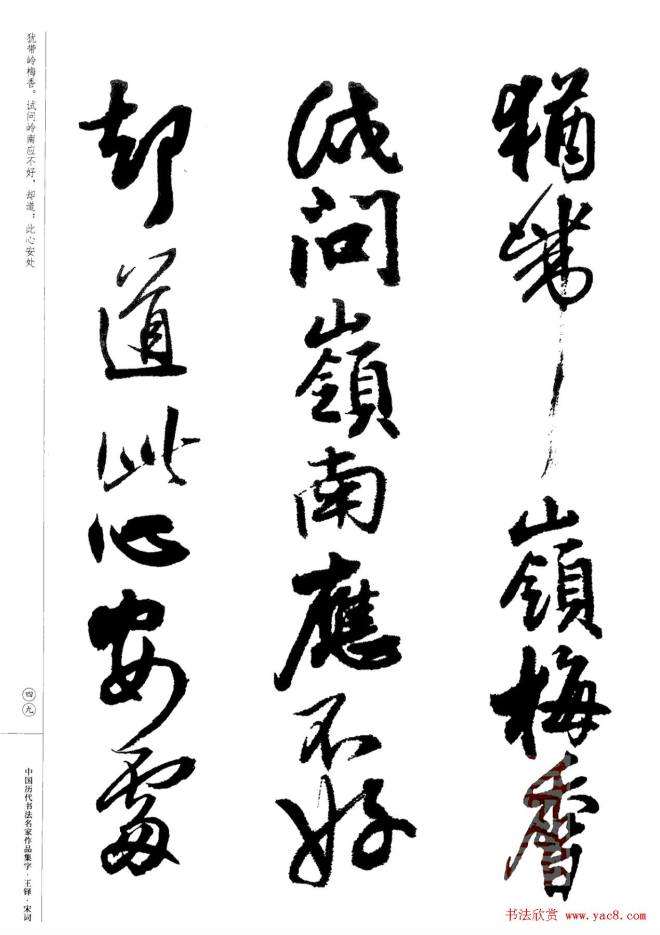 猶帶嶺梅香
試問嶺南應不好
却道此心安處
犹带岭梅香。试问岭南应不好，却道：此心安处
四九
中国历代书法名家作品集字·王铎·宋词
书法欣赏 www.yac8.com